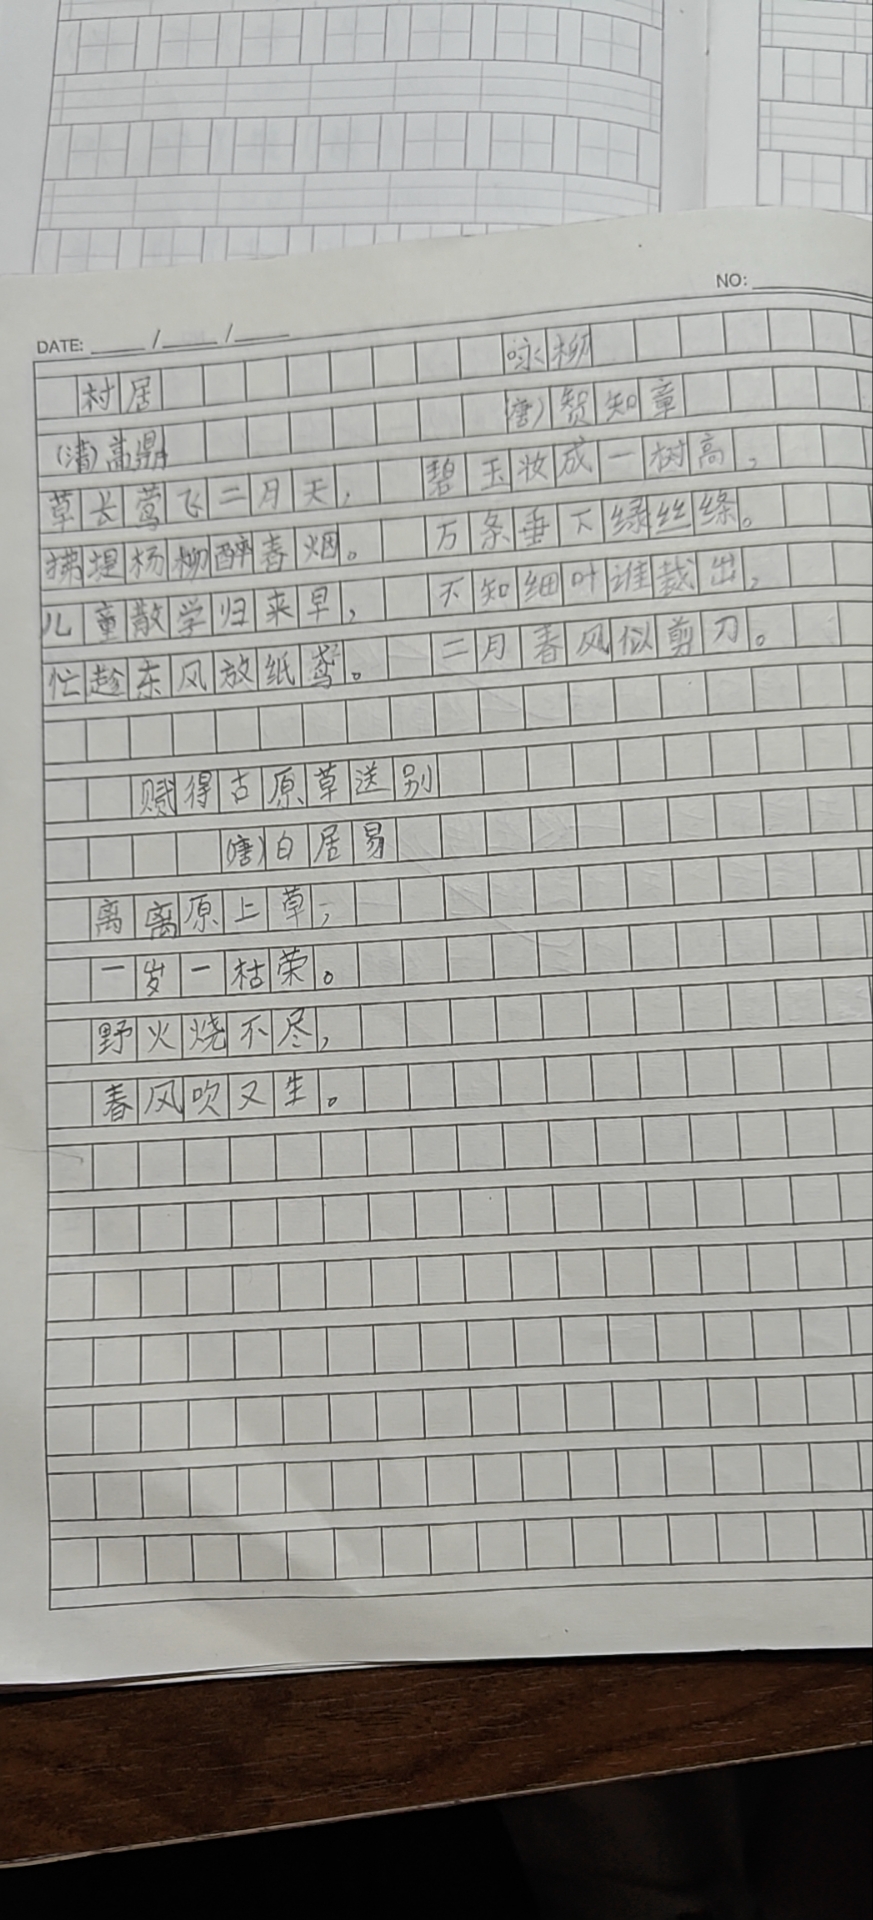 NO:
DATE: / /
村居
(清)高鼎
草长莺飞二月天,
拂堤杨柳醉春烟。
儿童散学归来早,
忙趁东风放纸鸢。
咏柳
(唐)贺知章
碧玉妆成一树高,
万条垂下绿丝绦。
不知细叶谁裁出,
二月春风似剪刀。
赋得古原草送别
(唐)白居易
离离原上草,
一岁一枯荣。
野火烧不尽,
春风吹又生。